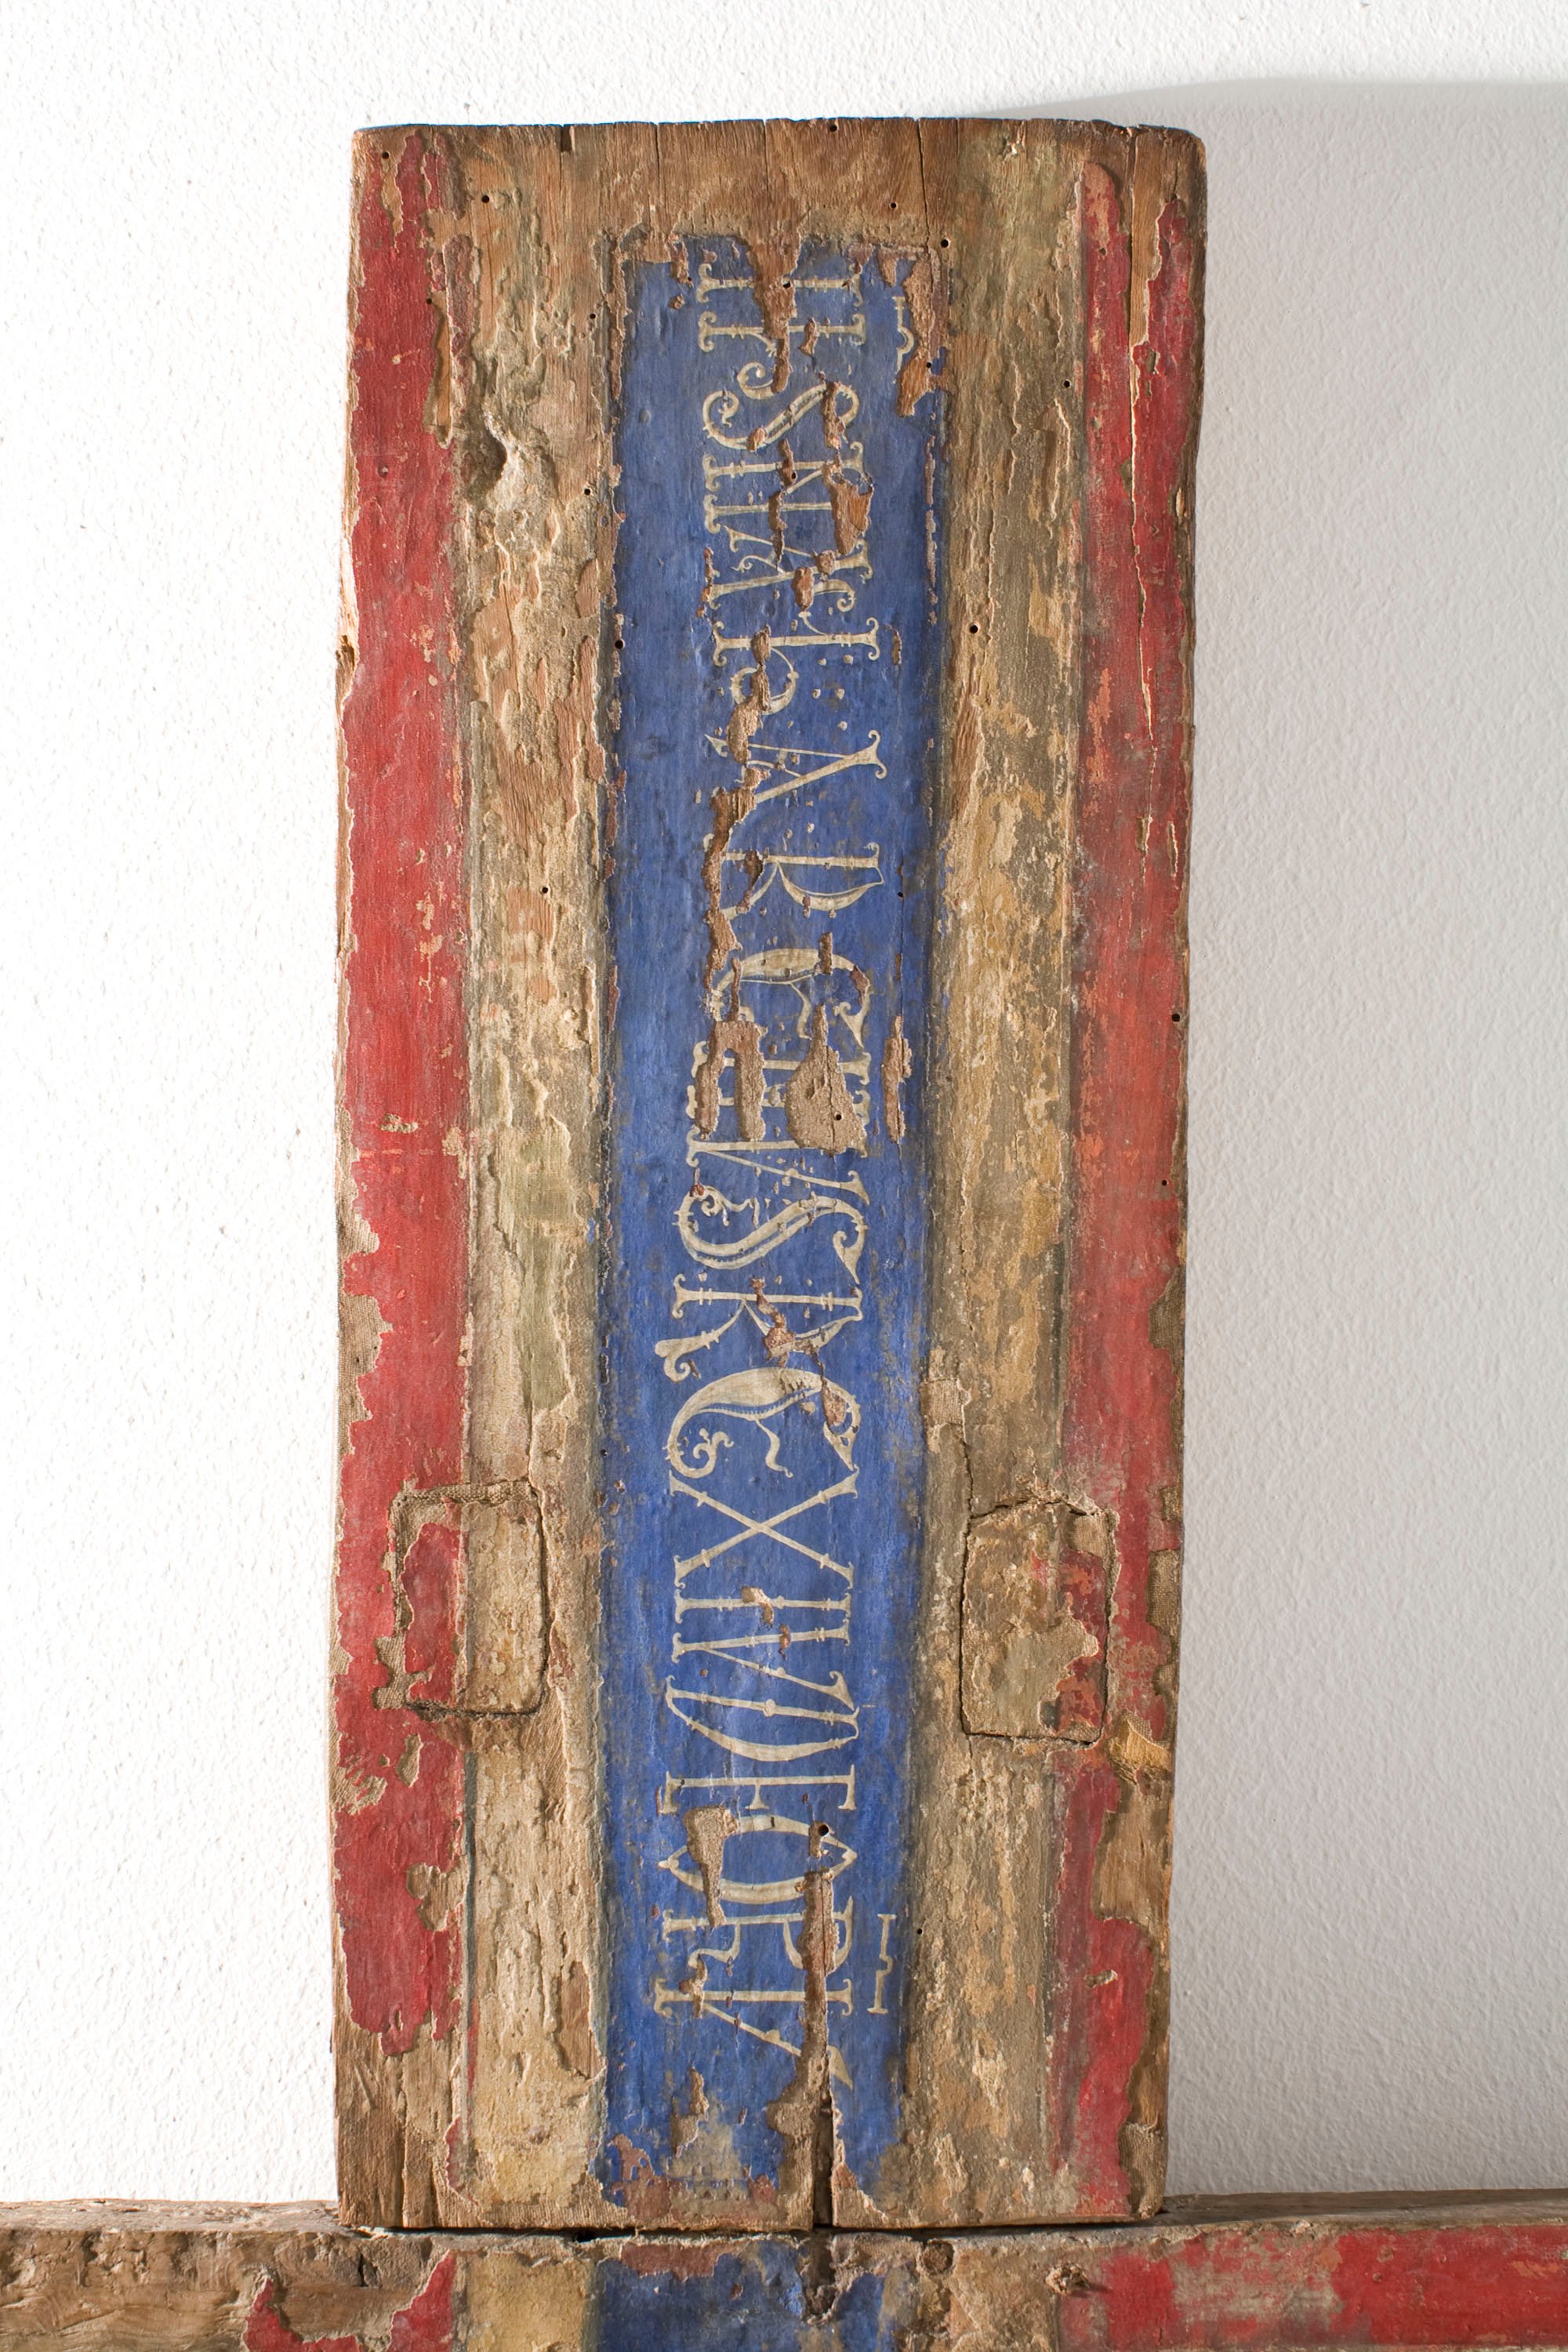 IHS NAÇARENVS REX IVDEORV